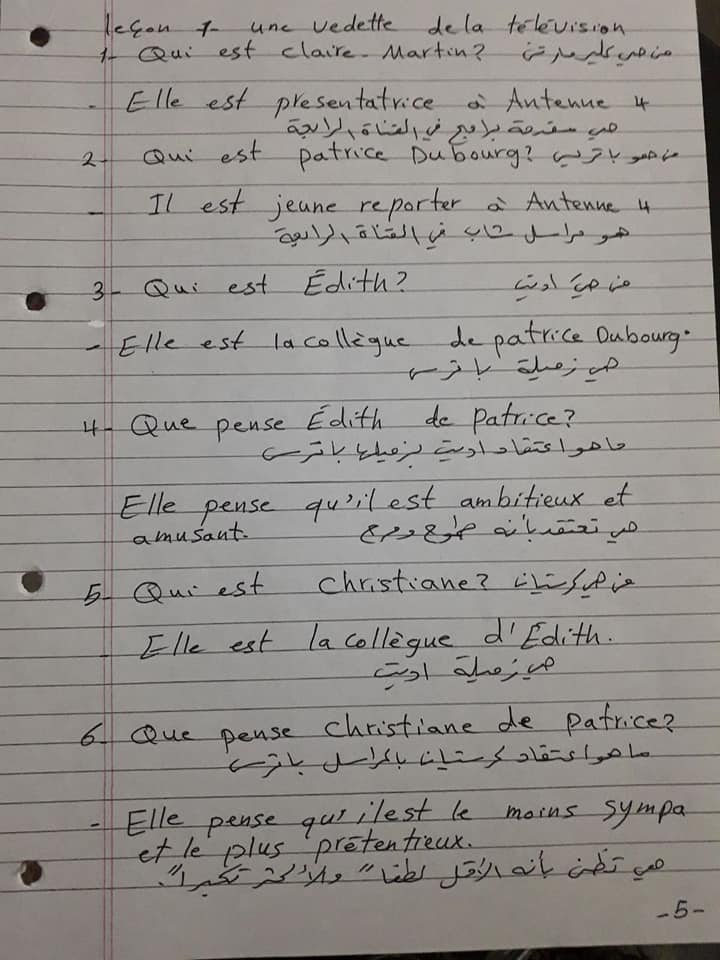 leçon 1- une vedette de la télévision
1- Qui est claire Martin? من هي كلير مارتن
- Elle est présentatrice à Antenne 4
هي مقدمة برامج في القناة الرابعة
2- Qui est patrice Dubourg? من هو باتريس
- Il est jeune reporter à Antenne 4
هو مراسل شاب في القناة الرابعة
3- Qui est Édith? من هي اديت
- Elle est la collègue de patrice Dubourg.
هي زميلة باترس
4- Que pense Édith de Patrice?
ما هو اعتقاد اديت بزميلها باترس
Elle pense qu'il est ambitieux et
amusant. هي تعتقد بأنه طموح ومرح
5- Qui est christiane? من هي كرستيان
Elle est la collègue d'Édith.
هي زميلة اديت
6- Que pense christiane de patrice?
ما هو اعتقاد كرستيان بالمراسل باترس
- Elle pense qu'il est le moins sympa
et le plus prétentieux.
هي تظن بأنه الأقل لطفا" والاكثر تكبرا".
-5-